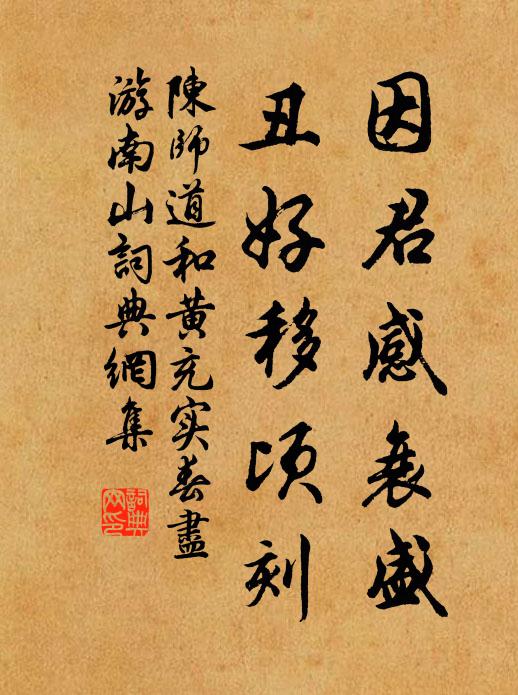 因君感衰盛
丑好移頃刻
陳師道和黄充实春盡
游南山詞典網集
詞典
网印